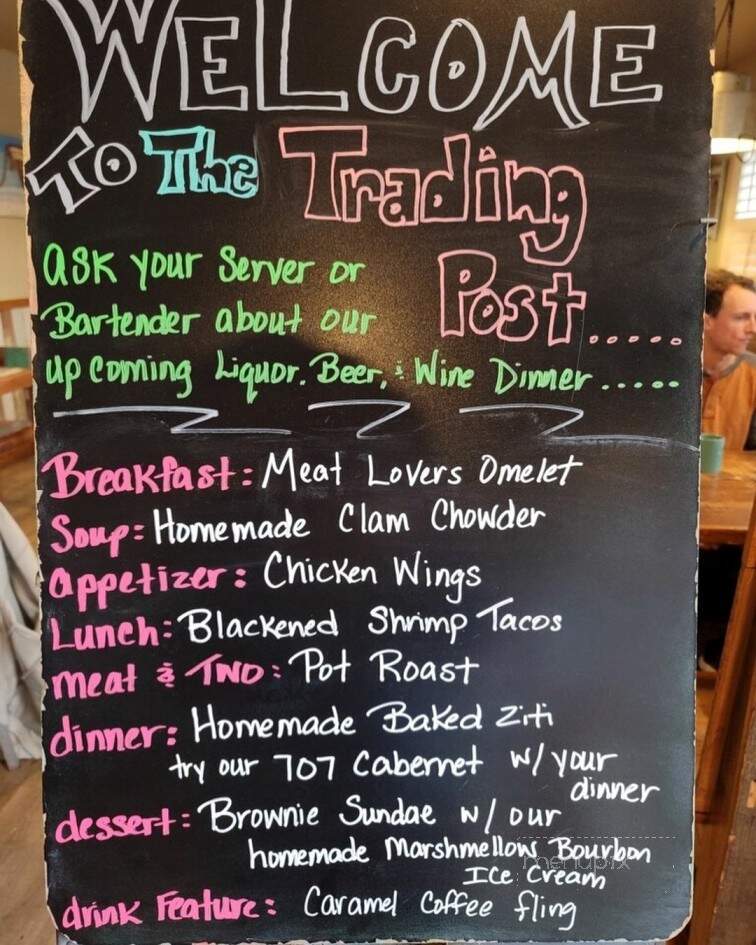 WELCOME
To The Trading
Post.....
ask your Server or
Bartender about our
up coming Liquor, Beer, & Wine Dinner.....
Breakfast: Meat Lovers Omelet
Soup: Homemade Clam Chowder
appetizer: Chicken Wings
Lunch: Blackened Shrimp Tacos
meat & TWO: Pot Roast
dinner: Homemade Baked Ziti
try our 707 Cabernet w/ your
dinner
dessert: Brownie Sundae w/ our
homemade Marshmellow Bourbon
Ice Cream
drink Feature: Caramel Coffee fling
menupix